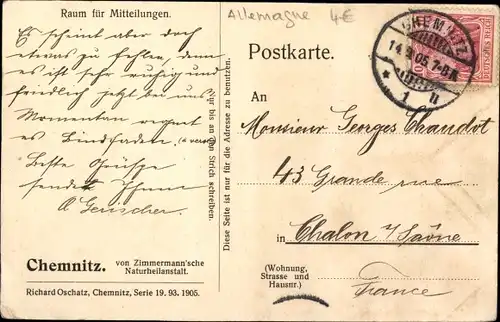 Raum für Mitteilungen.
Es scheint aber doch
etwas zu fehlen, denn
es ist sehr ruhig und
friedlich jetzt bei uns
Momentan regnet
es Bindfaden
Beste Grüße
sendet Ihnen
Gerischer.
Chemnitz. von Zimmermann'sche
Naturheilanstalt.
Richard Oschatz, Chemnitz, Serie 19. 93. 1905.
Nur bis an den Strich schreiben.
Diese Seite ist nur für die Adresse zu benutzen.
Allemagne 4€
Postkarte.
CHEMNITZ
14.9.05.7-8N
1 n
DEUTSCHES REICH
10
An
Monsieur Georges Chaudot
43 Grande rue
in Chalon s/Saône
(Wohnung,
Strasse und
Hausnr.)
France